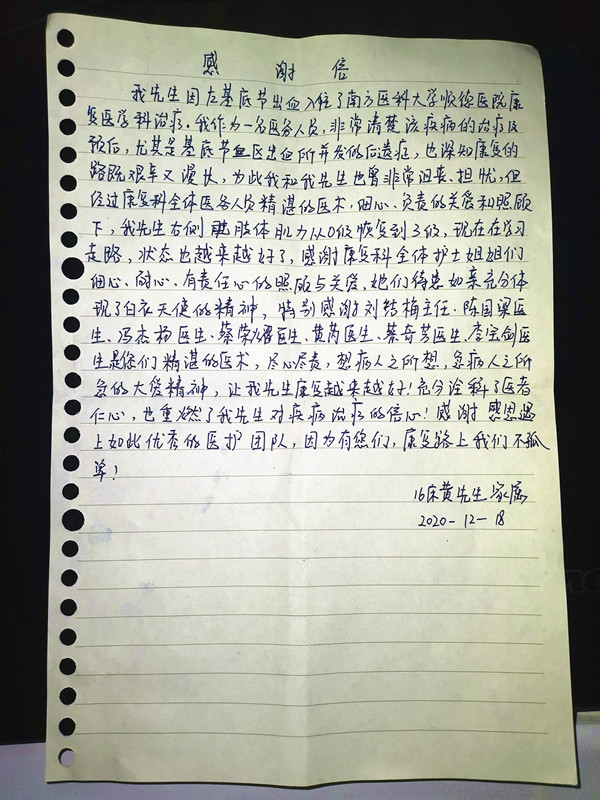 感谢信
我先生因左基底节出血入住了南方医科大学顺德医院康
复医学科治疗。我作为一名医务人员,非常清楚该疾病的治疗及
预后,尤其是基底节区出血所并发的后遗症,也深知康复的
路既艰辛又漫长,为此我和我先生也曾非常沮丧、担忧,但
经过康复科全体医务人员精湛的医术,细心、负责的关爱和照顾
下,我先生右侧肢体肌力从0级恢复到3级,现在在学习
走路,状态也越来越好了,感谢康复科全体护士姐姐们
细心、耐心、有责任心的照顾与关爱,她们待患如亲充分体
现了白衣天使的精神,特别感谢刘结梅主任、陈国梁医
生、冯杰扬医生、蔡荣耀医生、黄芮医生、蔡奇芳医生、李宝剑医
生是您们精湛的医术,尽心尽责,想病人之所想,急病人之所
急的大爱精神,让我先生康复越来越好!充分诠释了医者
仁心,也重燃了我先生对疾病治疗的信心!感谢感恩遇
上如此优秀的医护团队,因为有您们,康复路上我们不孤
单!
16床黄先生家属
2020-12-18